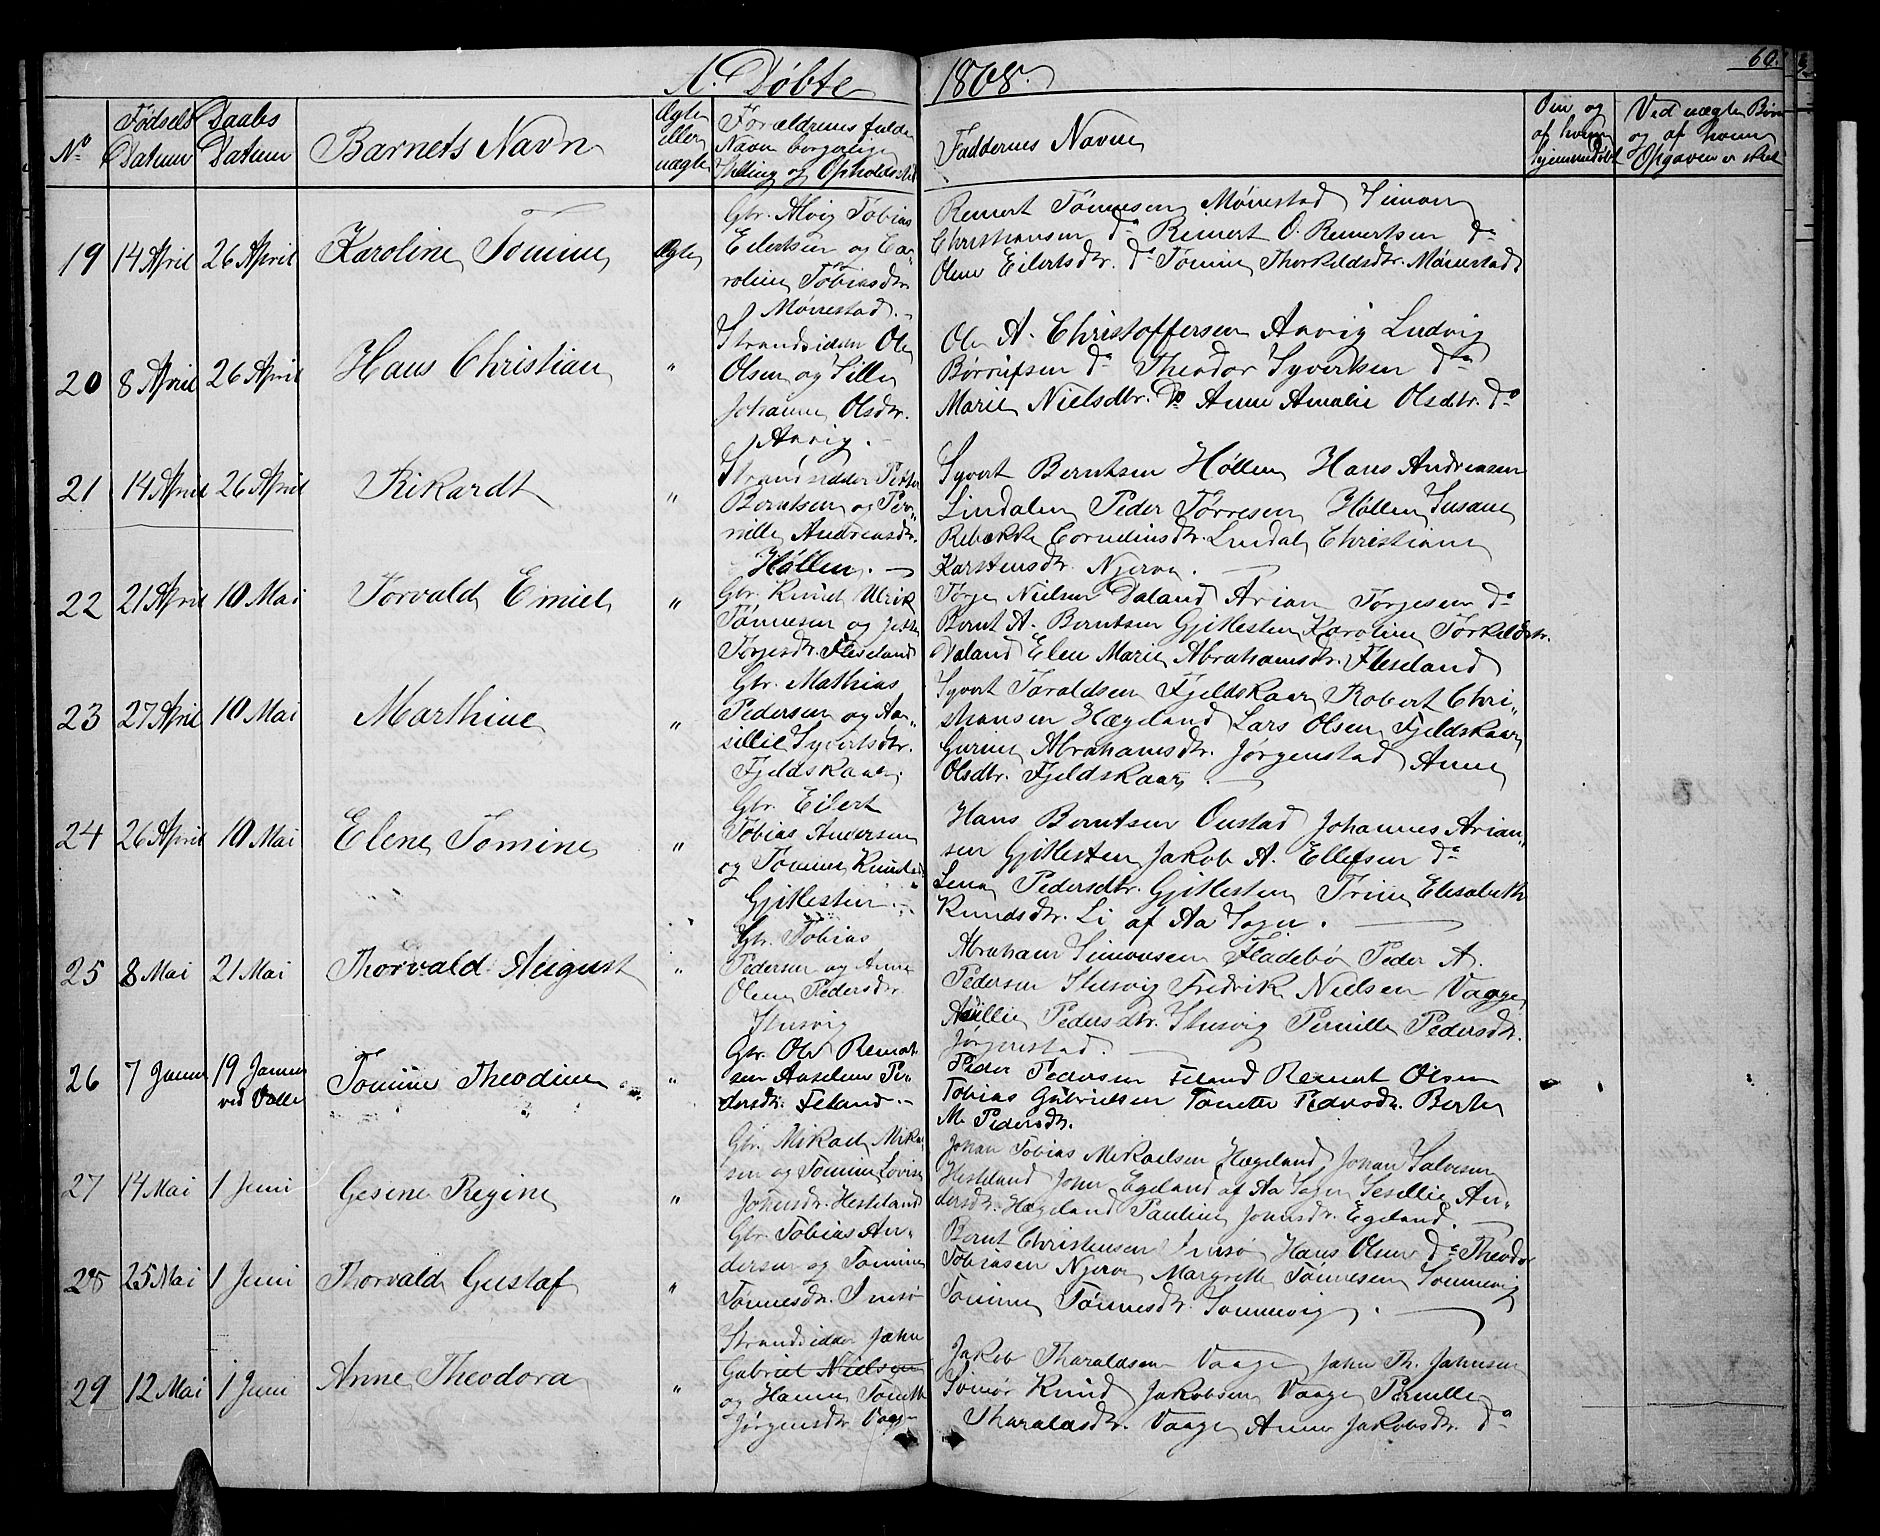 A. Døbte 1868.
60.
No
Fødsels Datum
Daabs Datum
Barnets Navn
Ægte eller uægte
Forældrenes fulde Navn borgerlige Stilling og Opholdssted
Faddernes Navne
Om og af hvem hjemmedøbt
Ved uægte Børn og af hvem Opgaven er skeet
19 14 April 26 April Karoline Tomine Ægte
Gbr. Alvig Tobias
Eilertsen og Ca-
roline Tobiasdtr.
Mønestad.
Reinert Tønnesen Mønestad Simon
Christiansen do Reinert O. Reinertsen do
Oline Eilertsdtr. do Tomine Thorkildsdtr. Mønestad
20 8 April 26 April Hans Christian "
Strandsidder Ole
Olsen og Sille
Johanne Olsdtr.
Aavig.
Ole A. Christoffersen Aavig Ludvig
Børrufsen do Theodor Syvertsen do
Marie Nielsdtr. do Anne Amalie Olsdtr. do
21 14 April 26 April Rikardt "
Strandsidder Petter
Berntsen og Per-
nille Andreasdtr.
Høllen.
Syvert Berntsen Høllen Hans Andreasen
Lindalen Peder Tørresen Høllen Susane
Rebekke Corneliusdtr. Lindal Christiane
Karstensdtr. Njerve.
22 21 April 10 Mai Torvald Emiel "
Gbr. Knud Ulrik
Tønnesen og Jette
Torjesdtr. Fleseland
Torje Nielsen Daland Arian Torjesen do
Bernt A. Berntsen Gjillesten Karoline Torkildsdtr.
Daland Elen Marie Abrahamsdtr. Fleseland
23 27 April 10 Mai Marthine "
Gbr. Mathias
Pedersen og Aa-
sillie Syvertsdtr.
Fjeldskaar.
Syvert Taraldsen Fjeldskaar Robert Chri-
stiansen Hægeland Lars Olsen Fjeldskaar
Gurine Abrahamsdtr. Jørgenstad Anne
Olsdtr. Fjeldskaar.
24 26 April 10 Mai Elene Tomine "
Gbr. Eilert
Tobias Andersen
og Tomine Knudsd.
Gjillesten.
Hans Berntsen Onstad Johannes Arian-
sen Gjillesten Jakob A. Ellefsen do
Lena Pedersdtr. Gjillesten Trine Elisabeth
Knudsdtr. Li af Aa Sogn.
25 8 Mai 21 Mai Thorvald August "
Gbr. Tobias
Pedersen og Anne
Oline Pedersdtr.
Stusvig
Abraham Simonsen Fladebø Peder A.
Pedersen Stusvig Fredrik Nielsen Vaage
Pedersdtr. Stusvig Pernille Pedersdtr.
Jørgenstad.
26 7 Januar 19 Januar ved Valle Tomine Theodine "
Gbr. Ole Reinert-
sen Anseline Pe-
dersdtr. Feland.
Peder Pedersen Feland Reinert Olsen
Tobias Gabrielsen Tonette Pedersdtr. Berte
M. Pedersdtr.
27 14 Mai 1 Juni Gesene Regine "
Gbr. Mikael Mikal-
sen og Tomine Lovise
Johnsdtr. Hesteland
Johan Tobias Mekaelsen Hægeland Johan Salvesen
Hesteland John Egeland af Aa Sogn Sesellie An-
dersdtr. Hægeland Pauline Johnsdtr. Egeland.
28 25 Mai 1 Juni Thorvald Gustaf "
Gbr. Tobias An-
dersen og Tomine
Tønnesdtr. Imsø
Bernt Christensen Imsø Hans Olsen do Theodor
Tobiasen Njerve Margrethe Tønnesen Sonnevig
Tomine Tønnesdtr. Sonnevig.
29 12 Mai 1 Juni Anne Theodora "
Strandsidder Jahn
Gabriel Nielsen
og Hanne Tonette
Jørgensdtr. Vaage
Jakob Tharaldsen Vaage Jahn Th. Jahnsen
Knud Jakobsen Vaage Pernille
Tharaldsdtr. Vaage Anne Jakobsdtr. do